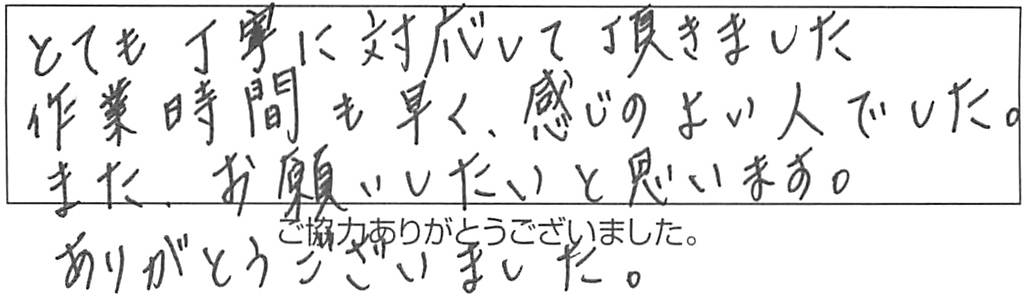 とても丁寧に対応して頂きました
作業時間も早く、感じのよい人でした。
また、お願いしたいと思います。
ご協力ありがとうございました。
ありがとうございました。